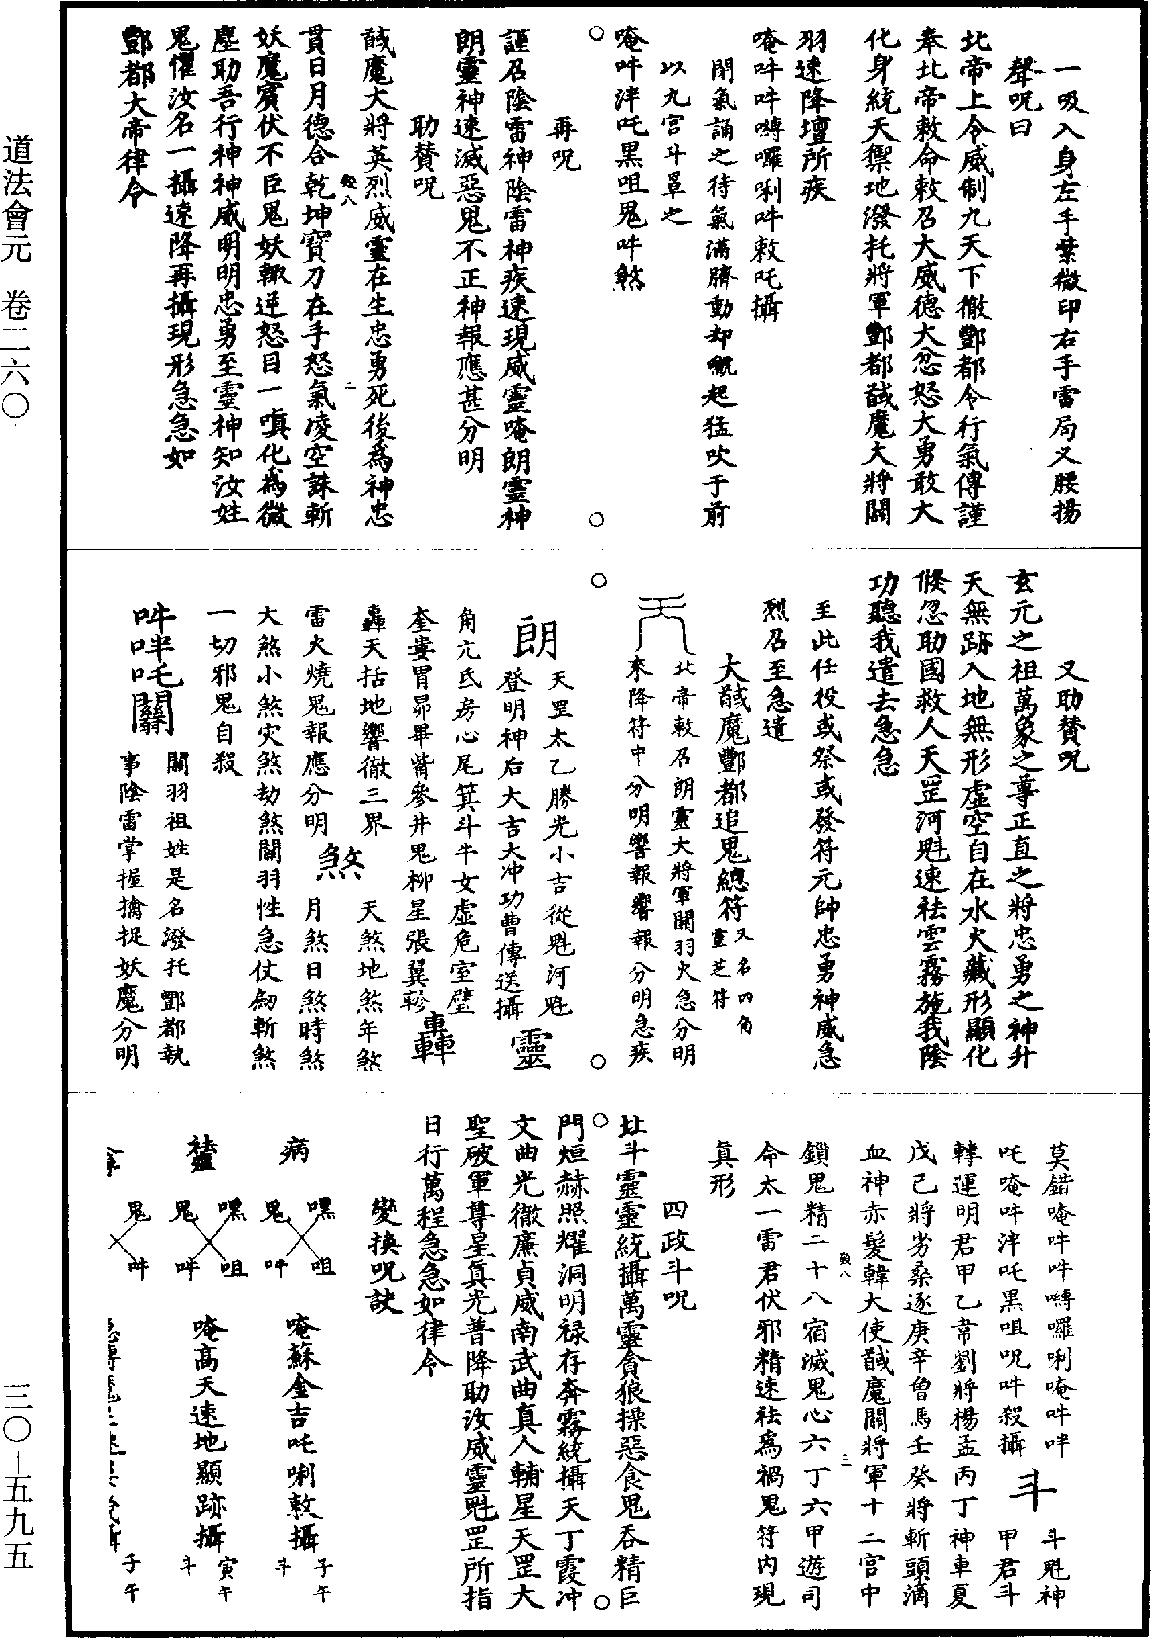 一吸入身左手紫微印右手雷局叉腰揚
聲呪曰
北帝上令威制九天下徹酆都令行氣傳謹
奉北帝敕命敕召大威德大忿怒大勇敢大
化身統天禦地潑托將軍酆都馘魔大將關
羽速降壇所疾
唵吽吽囀囉唎吽敕吒攝
閉氣誦之待氣滿臍動却嚫起猛吹于前
以九宮斗罩之
唵吽泮吒黑咀鬼吽煞
再呪
謹召陰雷神陰雷神疾速現威靈唵朗靈神
朗靈神速滅惡鬼不正神報應甚分明
助贊呪
馘魔大將英烈威靈在生忠勇死後為神忠
貫日月德合乾坤寶刀在手怒氣凌空誅斬
妖魔賓伏不臣鬼妖輒逆怒目一嗔化為微
塵助吾行神神威明明忠勇至靈神知汝姓
鬼懼汝名一攝速降再攝現形急急如
酆都大帝律令
又助贊呪
玄元之祖萬象之尊正直之將忠勇之神升
天無跡入地無形虛空自在水火藏形顯化
倏忽助國救人天罡河魁速祛雲霧施我陰
功聽我遣去急急
至此任役或祭或發符元帥忠勇神威急
烈召至急遣
大馘魔酆都追鬼總符 又名四角靈芝符
北帝敕召朗靈大將軍關羽火急分明
來降符中分明響報響報分明急疾
朗 天罡太乙勝光小吉從魁河魁
登明神后大吉大冲功曹傳送攝 靈
角亢氐房心尾箕斗牛女虛危室壁
奎婁胃昴畢觜參井鬼柳星張翼軫 轟
轟天括地響徹三界 天煞地煞年煞
雷火燒鬼報應分明 煞 月煞日煞時煞
大煞小煞灾煞劫煞關羽性急仗劒斬煞
一切邪鬼自殺
吽吽吒關 關羽祖姓是名潑托酆都執
事陰雷掌握擒捉妖魔分明
莫錯唵吽吽囀囉唎唵吽吽 斗魁神
吒唵吽泮吒黑咀呪吽殺攝 斗 甲君斗
轉運明君甲乙帝劉將揚孟丙丁神車夏
戊己將劣桑逐庚辛魯馬壬癸將斬頭滴
血神赤髮韓大使馘魔關將軍十二宮中
鎖鬼精二十八宿滅鬼心六丁六甲遊司
命太一雷君伏邪精速祛為禍鬼符內現
真形
四政斗呪
北斗靈靈統攝萬靈貪狼操惡食鬼吞精巨
門烜赫照耀洞明祿存奔霧統攝天丁霞冲
文曲光徹廉貞威南武曲真人輔星天罡大
聖破軍尊星真光普降助汝威靈魁罡所指
日行萬程急急如律令
變換呪訣
病 嘿咀鬼吽 唵蘇金吉吒唎敕攝 子午斗
嘿咀鬼吽 唵高天速地顯跡攝 寅午斗
鬼吽 子午
道法會元 卷二六〇
三〇–五九五